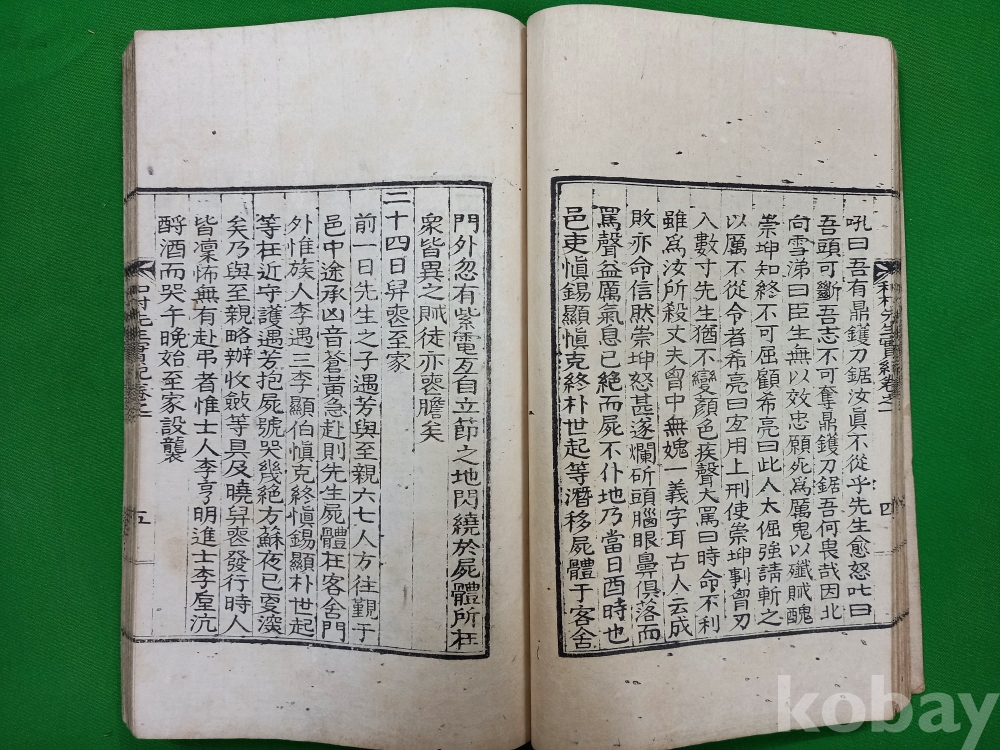 吼曰吾有鼎鑊刀鋸汝眞不從乎先生愈怒叱曰
吾頭可斷吾志不可奪鼎鑊刀鋸吾何畏哉因北
向雪涕曰臣生無以效忠願死爲厲鬼以殲賊醜
崇坤知終不可屈顧希亮曰此人太倔強請斬之
以厲不從令者希亮曰宐用上刑使崇坤剚胷刃
入數寸先生猶不變顏色疾聲大罵曰時命不利
雖爲汝所殺丈夫胷中無媿一義字耳古人云成
敗亦命信然崇坤怒甚遂爛斫頭腦眼鼻俱落而
罵聲益厲氣息已絕而屍不仆地乃當日酉時也
邑吏愼錫顯愼克終朴世起等潛移屍體于客舍
先生實紀卷之二
四
門外忽有紫電亙自立節之地閃繞於屍體所在
衆皆異之賊徒亦喪膽矣
二十四日舁喪至家
前一日先生之子遇芳與至親六七人方往覲于
邑中途承凶音蒼黃急赴則先生屍體在客舍門
外惟族人李遇三李顯伯愼克終愼錫顯朴世起
等在近守護遇芳抱屍號哭幾絕方蘇夜已叜深
矣乃與至親略辦收斂等具及曉舁喪發行時人
皆凜怖無有赴弔者惟士人李亨明進士李垕沆
酹酒而哭午晚始至家設襲
村先生實紀卷之二
五
kobay